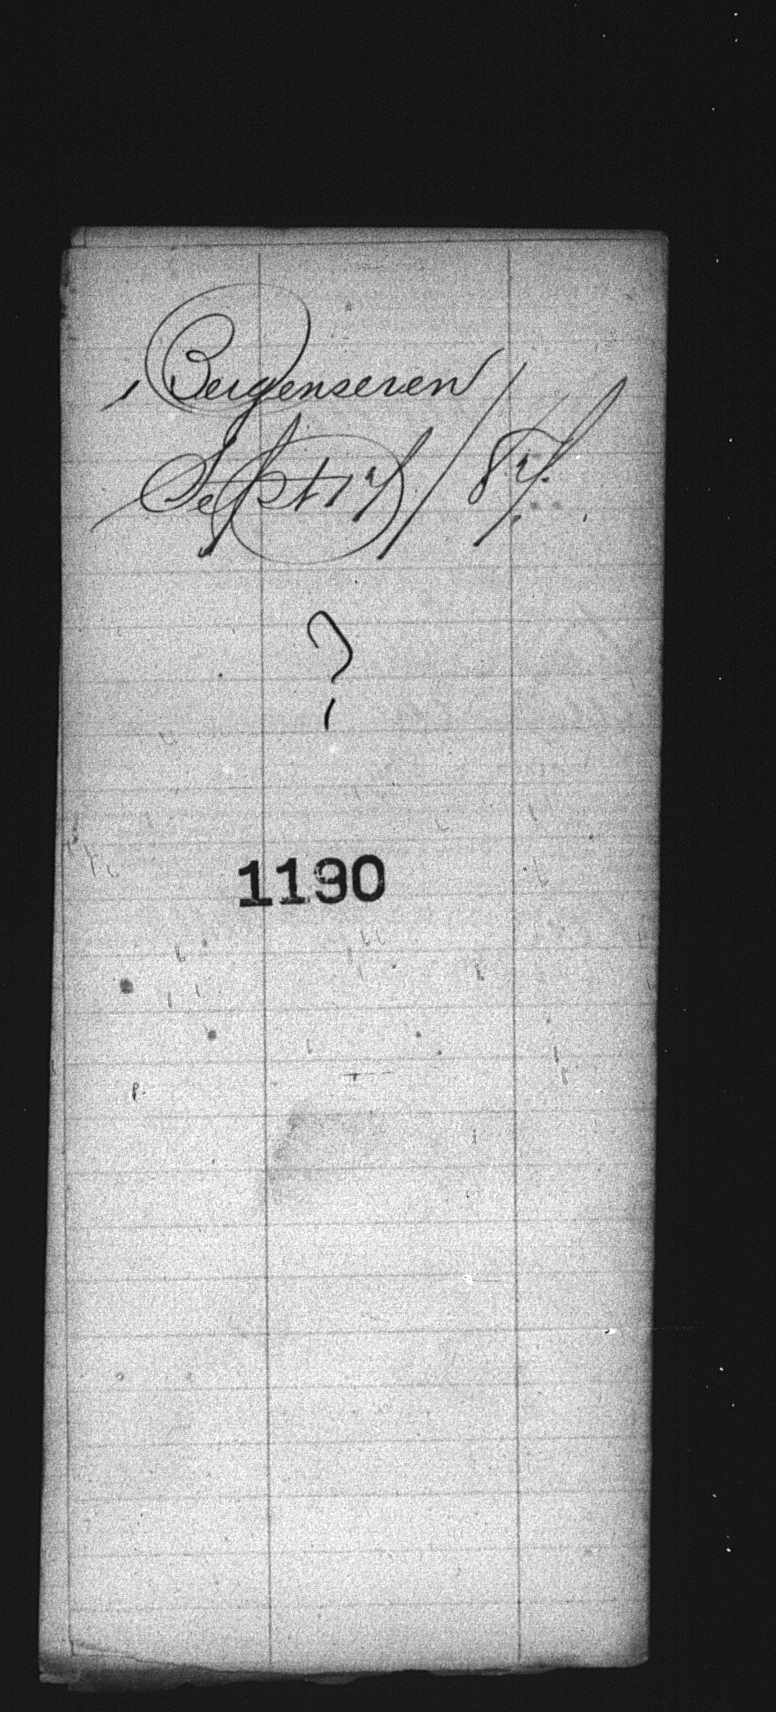 Bergenseren
Sept 17/87.
?
1190